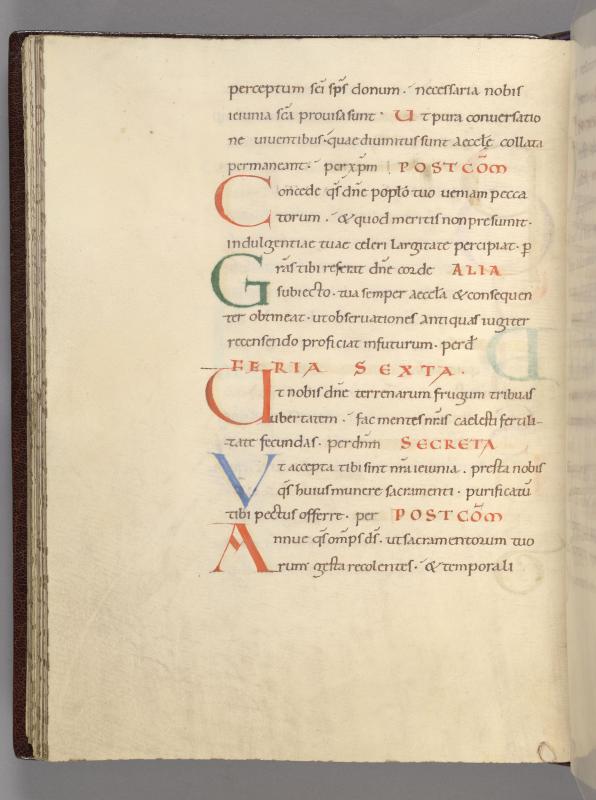 perceptum sc̄i sp̄s donum · necessaria nobis
ieiunia sc̄a provisa sunt · Ut pura conversatio
ne viventibus · quae divinitus sunt aeccl̄e collata
permaneant · per xp̄m POST COM̄
Concede q̄s dn̄e poplo tuo veniam pecca
torum · & quod meritis non presumit ·
indulgentiae tuae celeri largitate percipiat · p̄
Gr̄as tibi referat dn̄e corde ALIA
subiecto · tua semper aeccl̄a & consequen
ter obtineat · ut observationes antiquas iugiter
recensendo proficiat in futurum · per d̄
FERIA SEXTA ·
Ut nobis dn̄e terrenarum frugum tribuas
ubertatem · fac mentes nr̄as caelesti fertili-
tate fecundas · per dnm̄ SECRETA
Vt accepta tibi sint nr̄a ieiunia · presta nobis
q̄s huius munere sacramenti · purificatū
tibi pectus offerre · per POST COM̄
Annue q̄s omp̄s ds̄ · ut sacramentorum tuo
rum gesta recolentes · & temporali